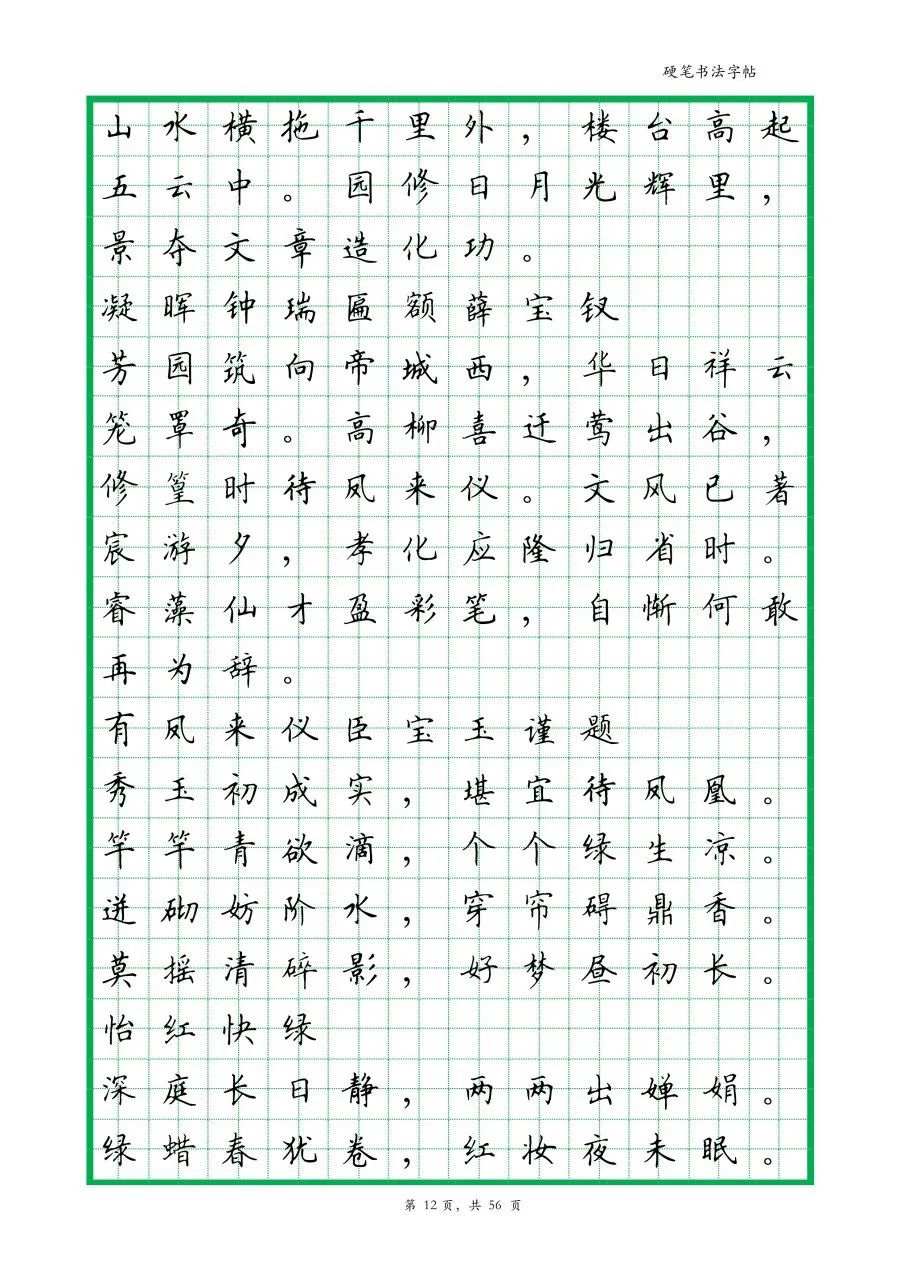 硬笔书法字帖
山水横拖千里外，楼台高起
五云中。园修日月光辉里，
景夺文章造化功。
凝晖钟瑞匾额薛宝钗
芳园筑向帝城西，华日祥云
笼罩奇。高柳喜迁莺出谷，
修篁时待凤来仪。文风已著
宸游夕，孝化应隆归省时。
睿藻仙才盈彩笔，自惭何敢
再为辞。
有凤来仪臣宝玉谨题
秀玉初成实，堪宜待凤凰。
竿竿青欲滴，个个绿生凉。
迸砌妨阶水，穿帘碍鼎香。
莫摇清碎影，好梦昼初长。
怡红快绿
深庭长日静，两两出婵娟。
绿蜡春犹卷，红妆夜未眠。
第 12 页，共 56 页